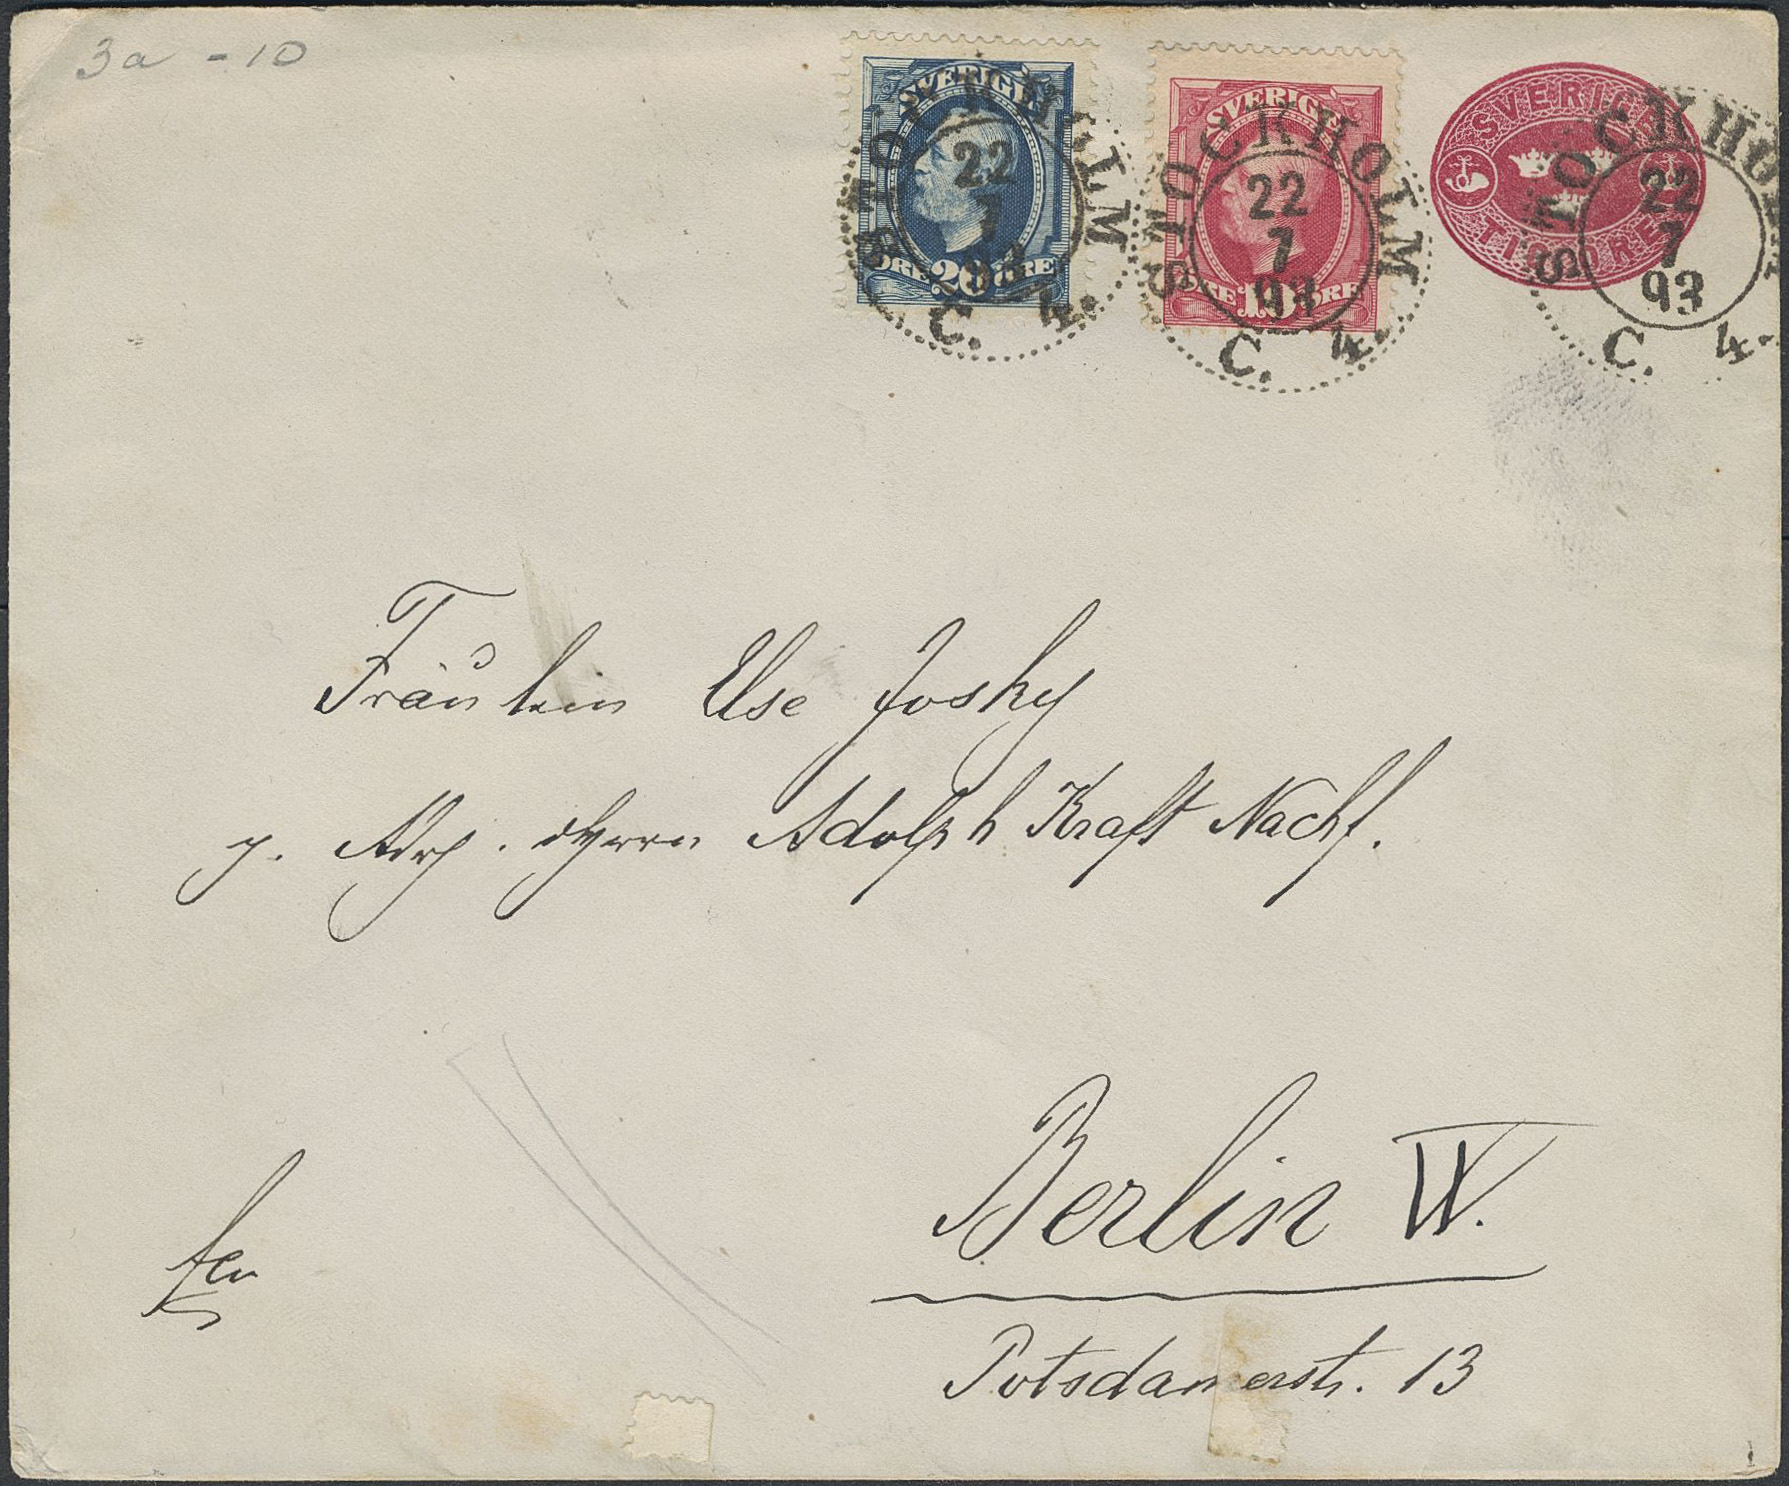 3a - 10
SVERIGE
20
ÖRE ÖRE
STOCKHOLM
22
7
93
C. 4.
SVERIGE
10
ÖRE ÖRE
STOCKHOLM
22
7
93
C. 4.
SVERIGE
TIO ÖRE
STOCKHOLM
22
7
93
C. 4.
Fräulein Else Josky
p. Adr. Herrn Adolph Kraft Nachf.
Berlin W.
Potsdamerstr. 13